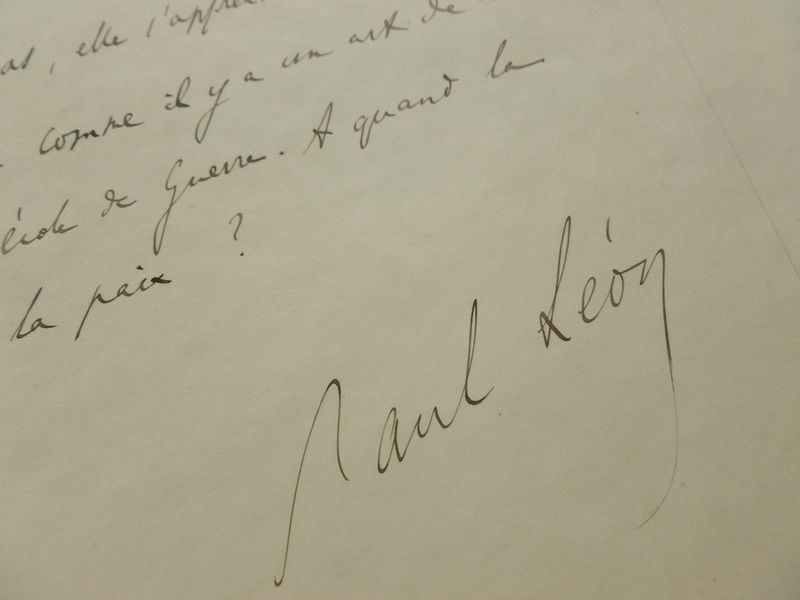 as, elle s'appren
comme il y a un art de
école de Guerre. A quand la
la paix ?
Paul Léon